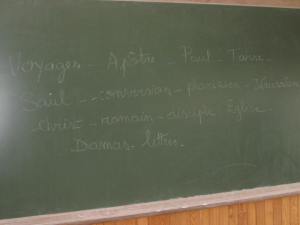 Voyages - Apôtre - Paul - Tarse -
Saül - conversion - pharisien - Jérusalem
Christ - romain - disciple - Église -
Damas - lettres -